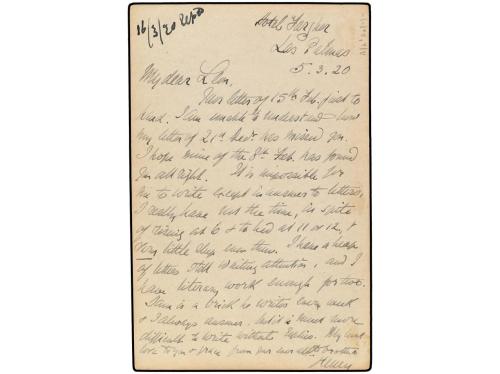 16/3/20
Hotel
Las Palmas
5.3.20
My dear
Your letter of 15th Feb. just to
hand. I am unable to understand how
my letter of 21st Decr. has missed you.
I hope mine of the 8th Feb. has found
you all right. It is impossible for
me to write except in answer to letters,
I really have not the time, in spite
of rising at 6 & to bed at 11 or 12, &
very little sleep even then. I have a heap
of letters still waiting attention, and I
have literary work enough for two.
is a brick he writes every week
& I always answer, but it is much more
difficult to write without My
love to you & from your
Henry